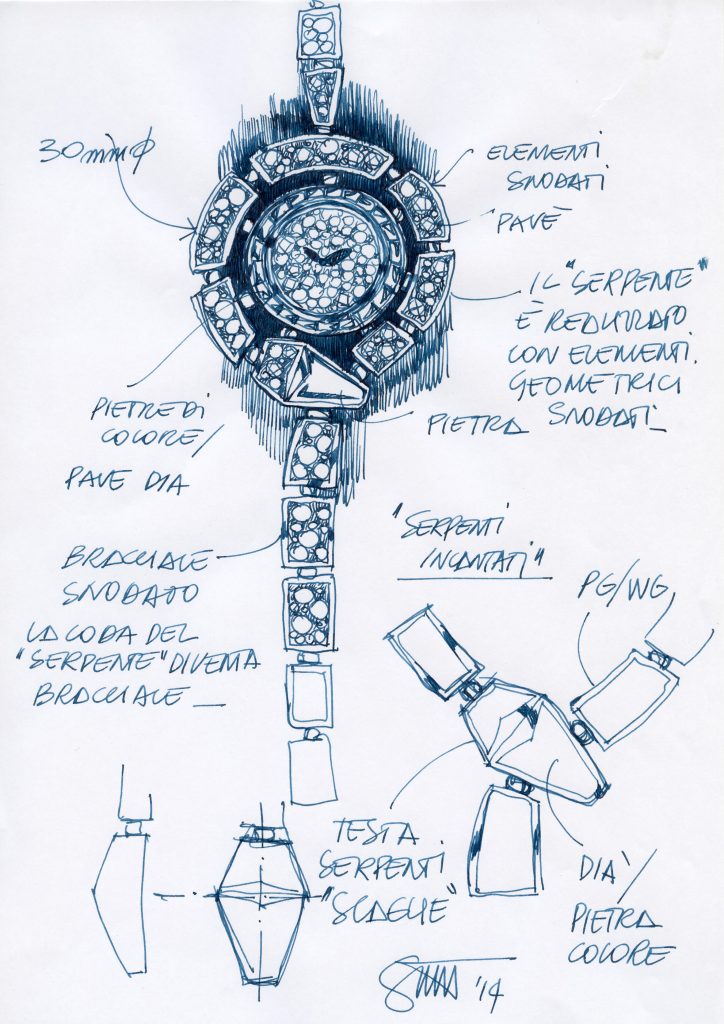 30mm ϕ
ELEMENTI
SNODATI
PAVÈ
IL "SERPENTE"
È REALIZZATO
CON ELEMENTI
GEOMETRICI
SNODATI_
PIETRE DI
COLORE/
PAVE DIA
PIETRA
BRACCIALE
SNODATO
LA CODA DEL
"SERPENTE" DIVENTA
BRACCIALE_
"SERPENTI
INCANTATI"
PG/WG
TESTA
SERPENTI
"SCAGLIE"
DIA'/
PIETRA
COLORE
'14